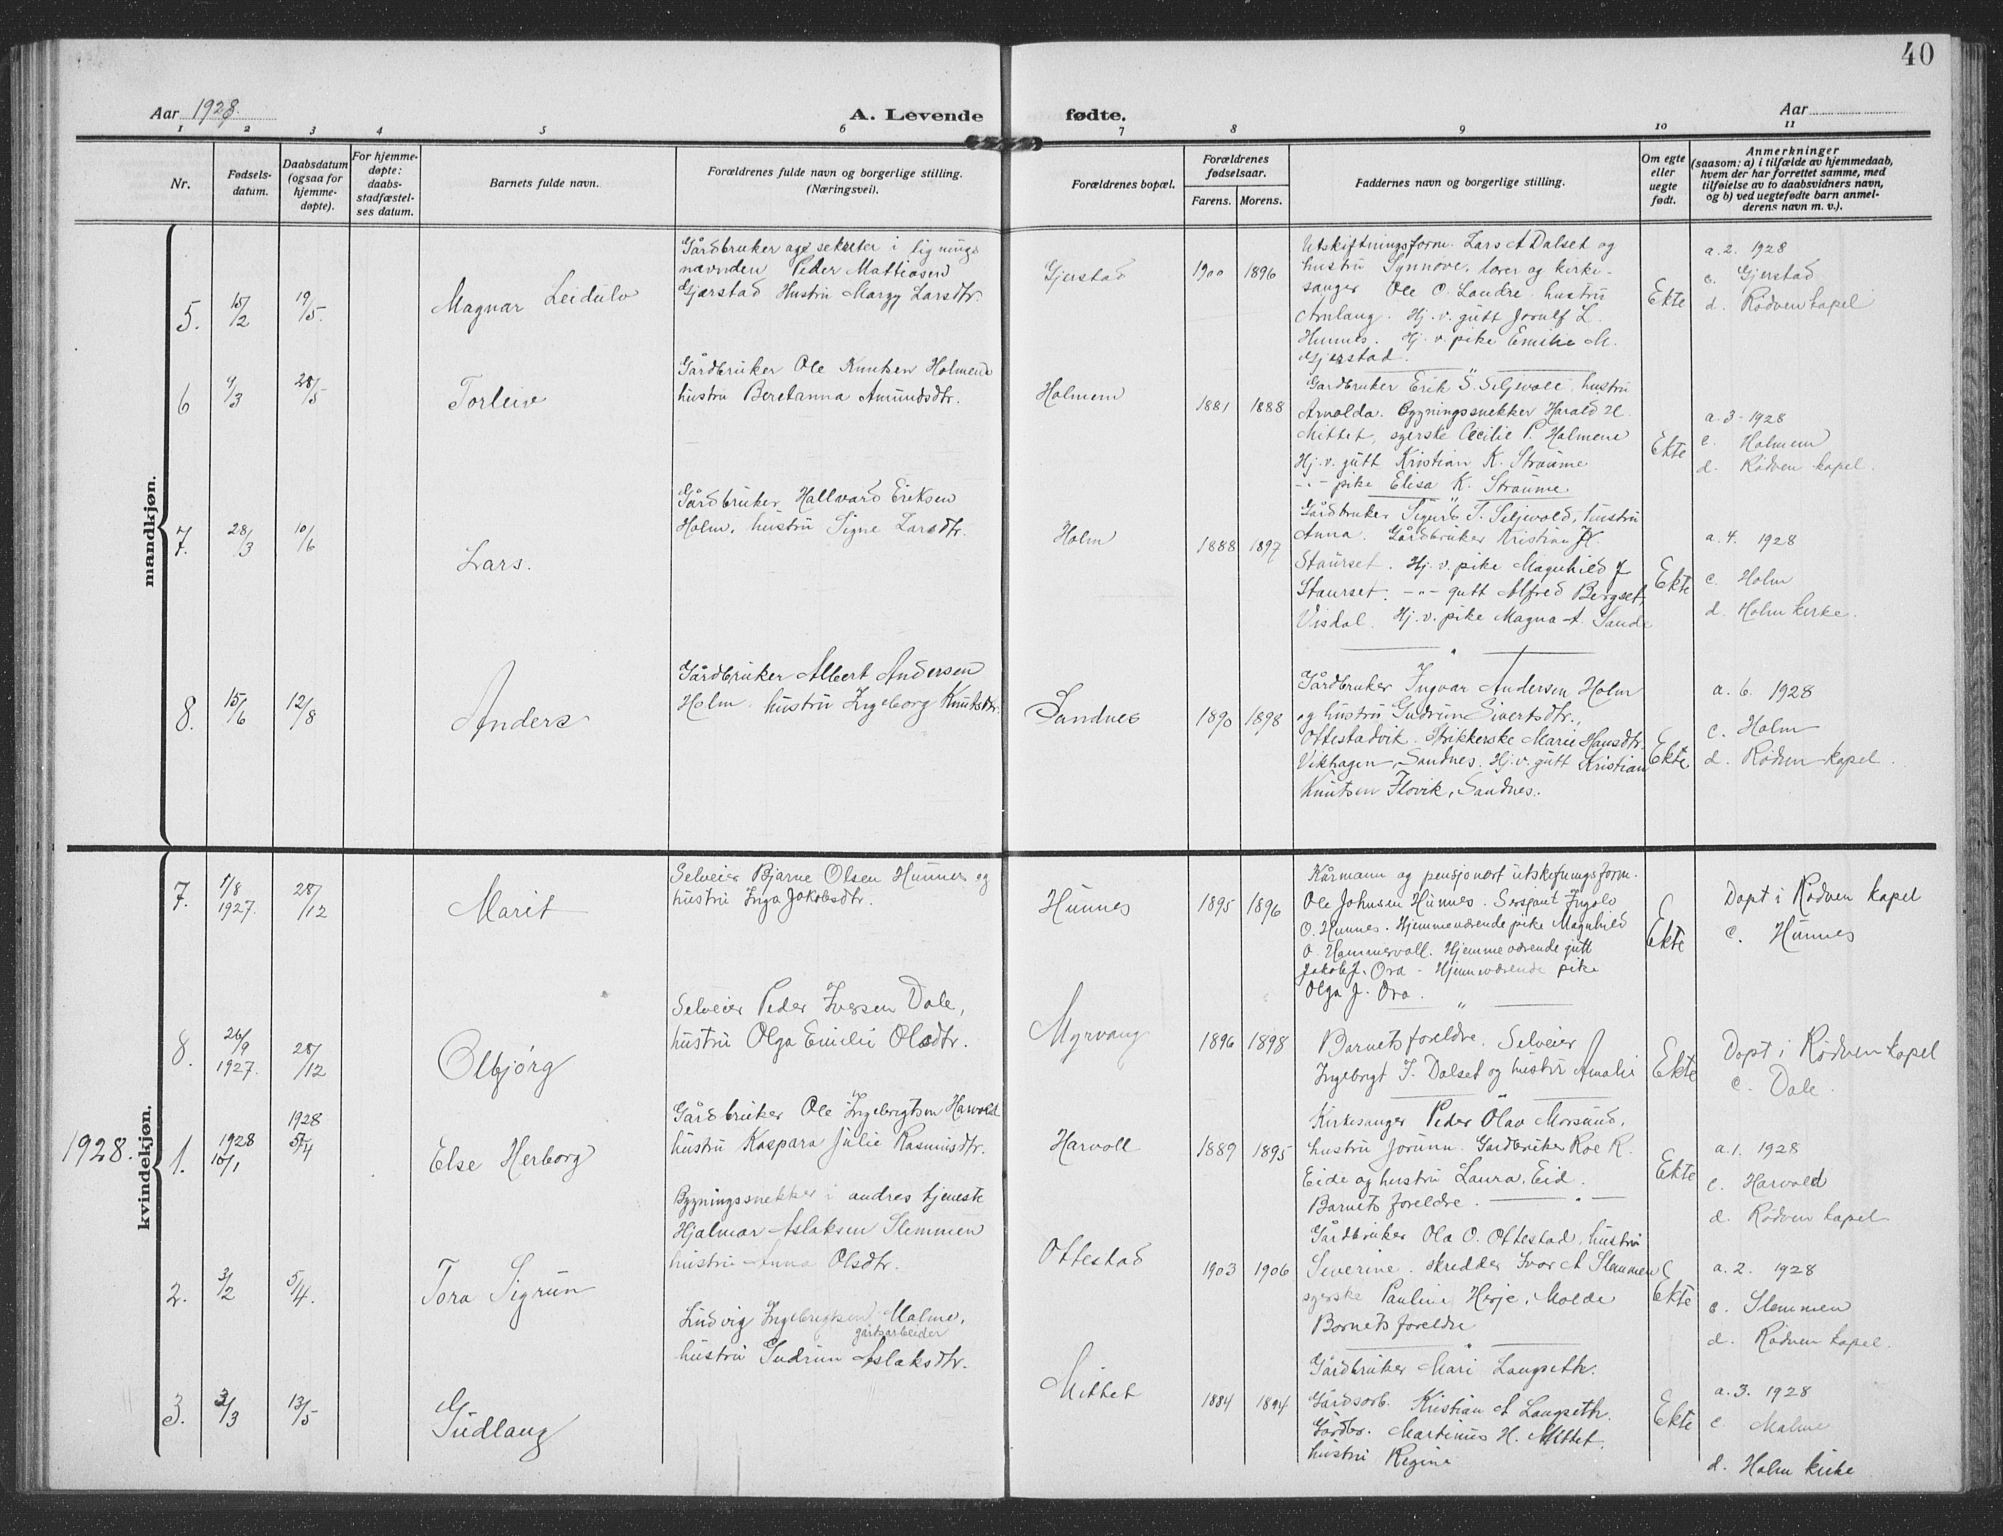 40
Aar 1928.
A. Levende fødte.
Aar
1 2 3 4 5 6 7 8 9 10 11
Nr.
Fødsels-
datum.
Daabsdatum
(ogsaa for
hjemme-
døpte).
For hjemme-
døpte:
daabs-
stadfæstel-
ses datum.
Barnets fulde navn.
Forældrenes fulde navn og borgerlige stilling.
(Næringsvei).
Forældrenes bopæl.
Forældrenes
fødselsaar.
Farens. Morens.
Faddernes navn og borgerlige stilling.
Om egte
eller
uegte
født.
Anmerkninger
(saasom: a) i tilfælde av hjemmedaab,
hvem der har forrettet samme, med
tilføielse av to daabsvidners navn,
og b) ved uegtefødte barn anmel-
derens navn m. v.).
mandkjøn.
5.
15/2
19/5.
Magnar Leidulv
Gårdbruker og sekretær i lignings
nævnden Peder Mattiasen
Gjærstad Hustru Margy Larsdtr.
Gjerstad
1900 1896
Utskiftningsform. Lars A Dalset og
hustru Synnøve, lærer og kirke-
sanger Ole O. Landre. hustru
Arnlaug. Hj. v. gutt Jorulf L.
Hunnes. Hj. v. pike Emilie M.
Gjerstad.
Ekte
a. 2. 1928
c. Gjerstad
d. Rødven kapel
6
4/3
28/5
Torleiv
Gårdbruker Ole Knutsen Holmem
hustru Beretanna Amundsdtr.
Holmem
1881 1888
Gardbruker Erik S. Seljevoll, hustru
Arnolda. Bygningssnekker Harald H.
Mittet, syerske Cecilie P. Holmem
Hj. v. gutt Kristian K. Straume
-"- pike Elisa K. Straume.
Ekte
a. 3 - 1928
c. Holmem
d. Rødven kapel.
7.
28/3
10/6
Lars.
Gårdbruker Hallvard Eriksen
Holm, hustru Signe Larsdtr.
Holm
1888 1897
Gårdbruker Sigurd T. Seljevold, hustru
Anna. Gårdbruker Kristian K.
Staurset. Hj. v. pike Magnhild J
Staurset. -"- gutt Alfred Bergset,
Visdal. Hj. v. pike Magna A. Sande
Ekte
a. 4. 1928
c. Holm
d. Holm kirke.
8.
15/6
12/8
Anders
Gårdbruker Albert Andersen
Holm. hustru Ingeborg Knutsdtr.
Sandnes
1890 1898
Gårdbruker Ingvar Andersen Holm
og hustru Gudrun Sivertsdtr.,
Ottestadvik. Strikkerske Marie Hansdtr.
Vikhagen, Sandnes. Hj. v. gutt Kristian
Knutsen Flovik, Sandnes.
Ekte
a. 6. 1928
c. Holm
d. Rødven kapel.
kvindekjøn.
7.
1/8
1927.
28/12
Marit
Selveier Bjarne Olsen Hunnes og
hustru Inga Jakobsdtr.
Hunnes
1895 1896
Kårmann og pensjonert utskiftningsform.
Ole Johnsen Hunnes. Sersjant Ingolv
O. Hunnes. Hjemmeværende pike Magnhild
O. Hammervoll. Hjemmeværende gutt
Jakob J. Ora - Hjemmeværende pike
Olga J. Ora.
Ekte
Døpt i Rødven kapel
c. Hunnes
8.
26/9
1927.
28/12
Olbjørg
Selveier Peder Iversen Dale,
hustru Olga Emilie Olsdtr.
Myrvang
1896 1898
Barnets foreldre. Selveier
Ingebrigt I. Dalset og hustru Amalie
Ekte
Døpt i Rødven kapel
c. Dale.
1928.
1.
1928
10/1
1928
5/4
Else Herborg
Gårdbruker Ole Ingebrigtsen Harvold
hustru Kaspara Julie Rasmusdtr.
Harvoll
1889 1895
Kirkesanger Peder Olav Morsund,
hustru Jorunn. Gardbruker Roe R.
Eide og hustru Laura, Eid.
Barnets foreldre.
Ekte
a. 1. 1928
c. Harvold
d. Rødven kapel
2.
3/2
5/4.
Tora Sigrun
Bygningssnekker i andres tjeneste
Hjalmar Aslaksen Slemmen
hustru Anna Olsdtr.
Ottestad
1903 1906
Gårdbruker Ola O. Ottestad, hustru
Severine. skredder Ivar A Slemmen
syerske Pauline Herje, Molde
Barnets foreldre
Ekte
a. 2. 1928
c. Slemmen
d. Rødven kapel.
3.
3/3
13/5
Gudlaug
Ludvig Ingebrigtsen Malme,
gårdsarbeider
hustru Gudrun Aslaksdtr.
Mittet
1884 1894
Gårdbruker Mari Langseth.
Gårdsarb. Kristian A Langseth.
Gårdbr. Martinus H. Mittet,
hustru Regine
Ekte
a. 3. 1928
c. Malme
d. Holm kirke